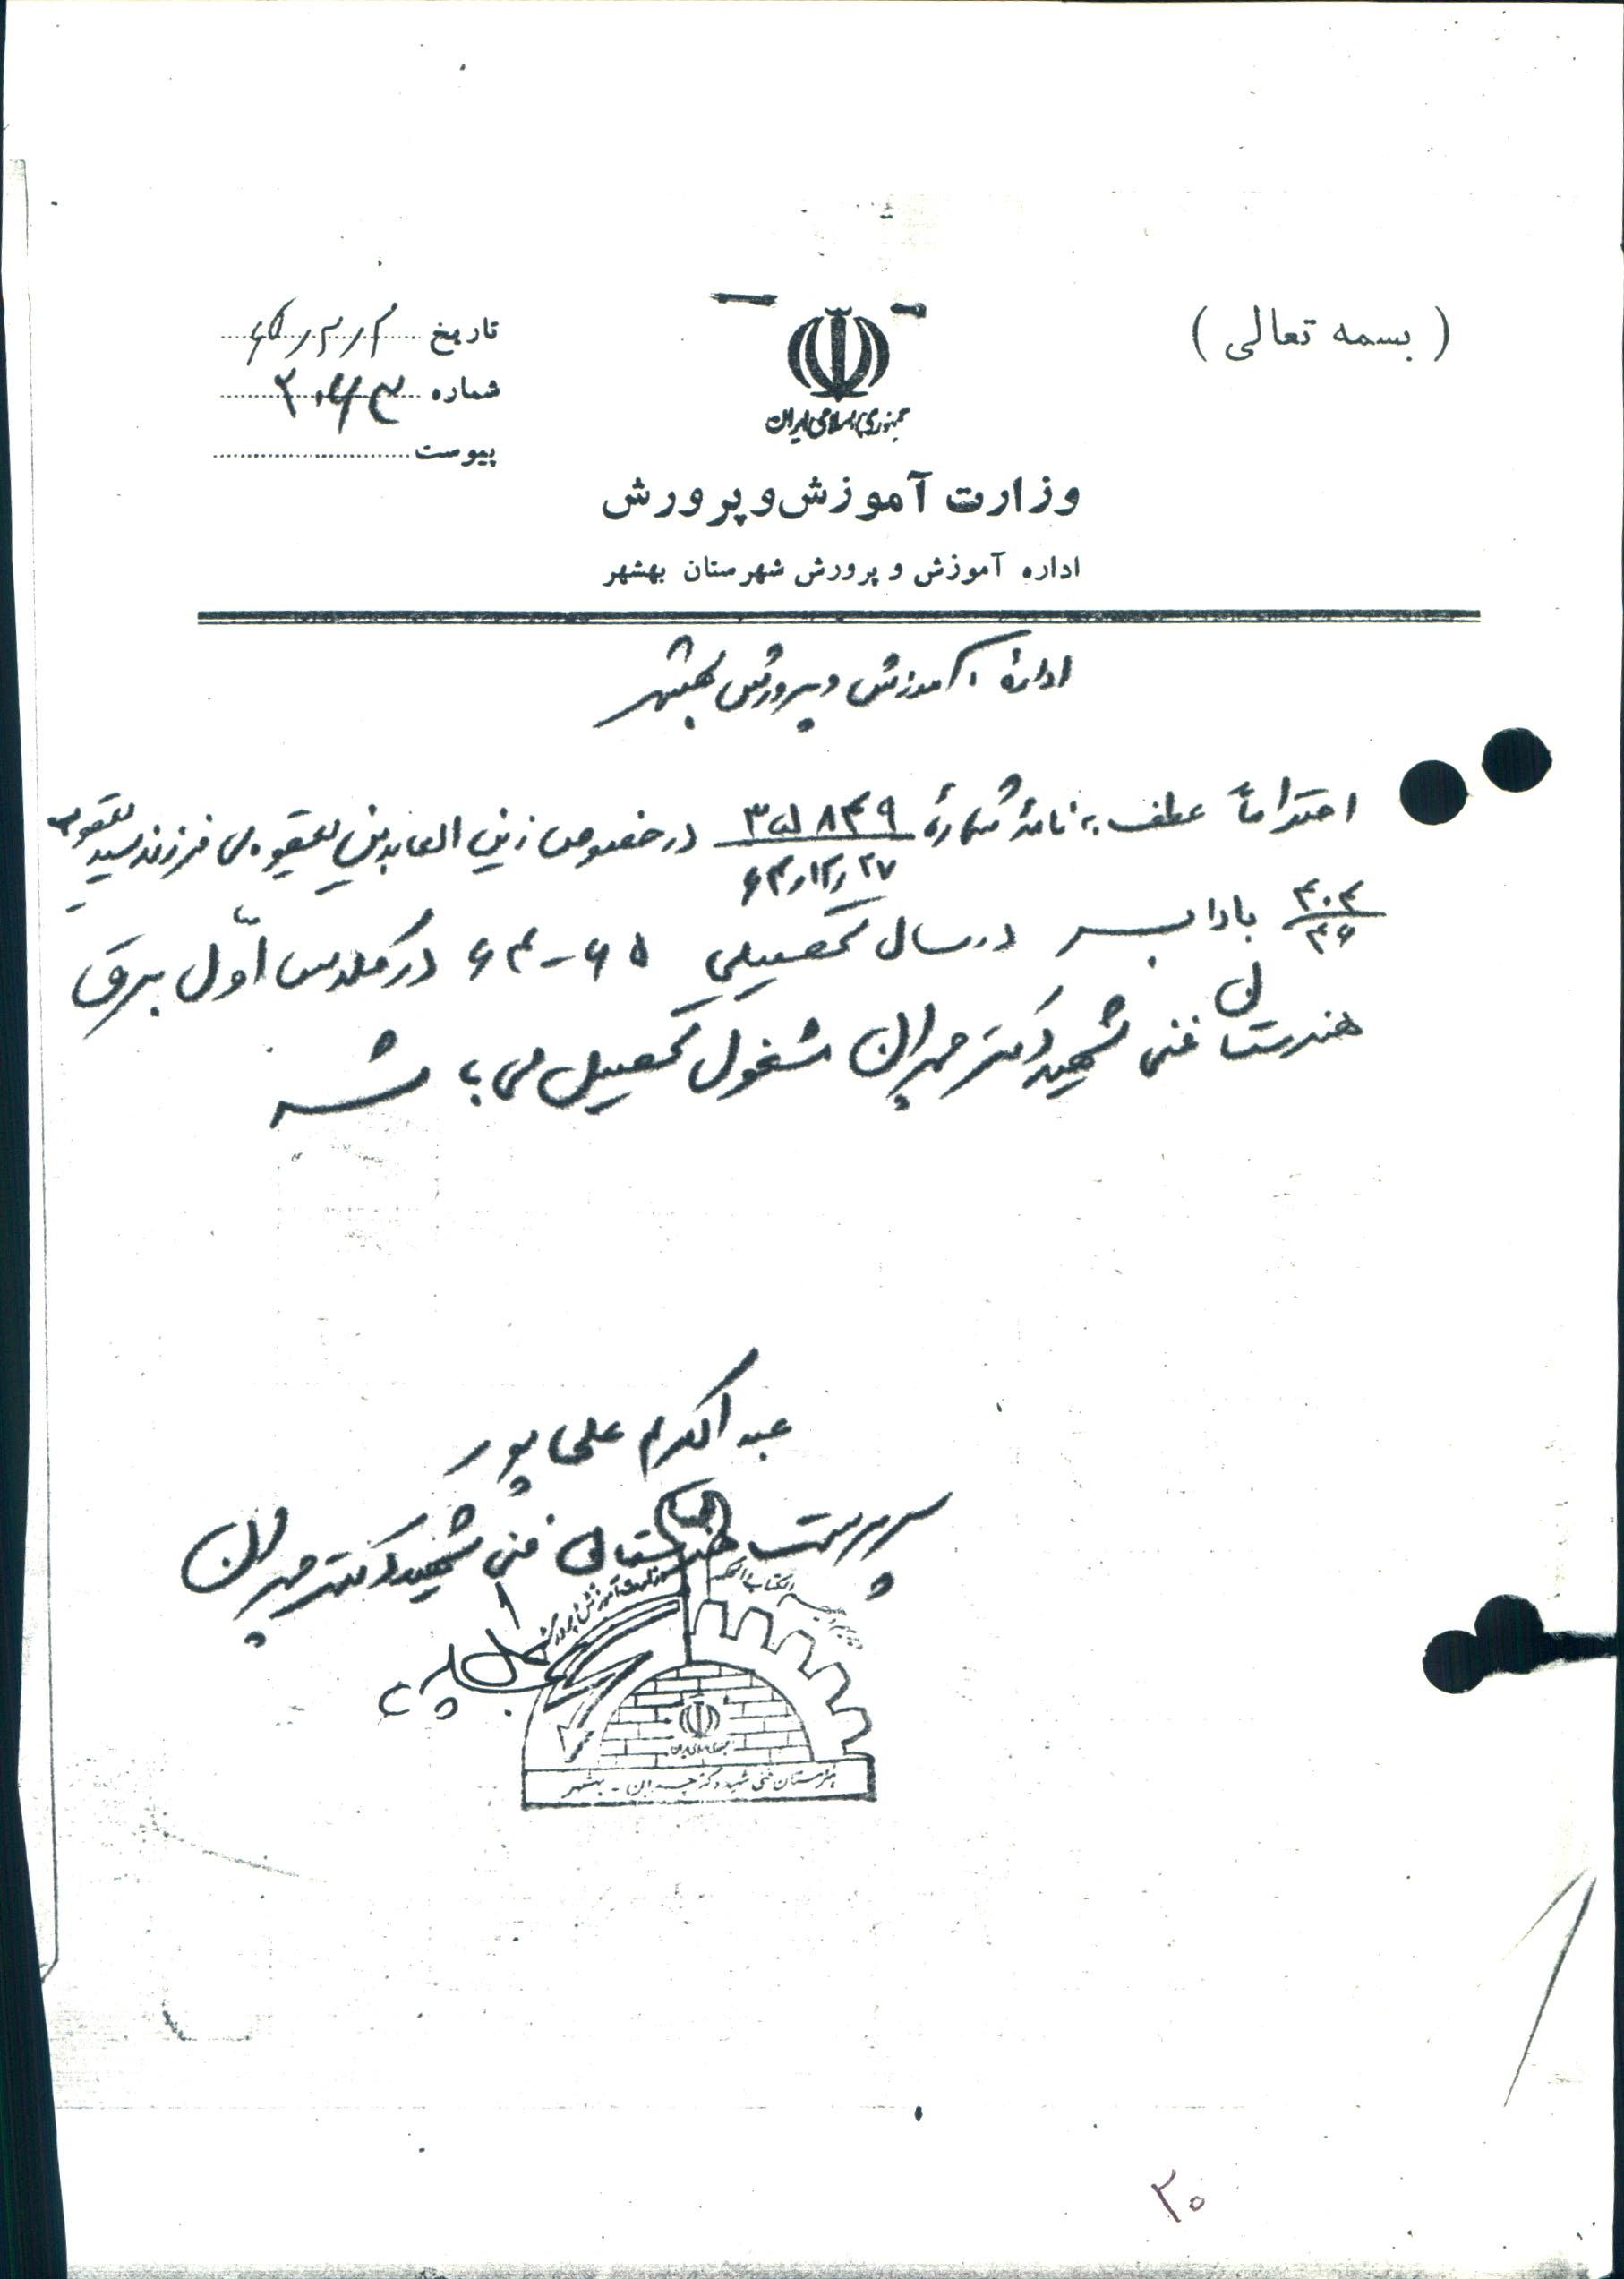 ( بسمه تعالی )
جمهوری اسلامی ایران
وزارت آموزش و پرورش
اداره آموزش و پرورش شهرستان بهشهر
تاریخ
شماره
پیوست
ادارهٔ آموزش و پرورش بهشهر
احتراماً عطف به نامهٔ شمارهٔ ۳۵۸۴۹ در خصوص زین العابدین یعقوبی فرزند سید یعقوب
۶۴٫۱۲٫۲۷
با دا بسر در سال تحصیلی ۶۵-۶۴ در کلاس اوّل برق
هنرستان فنی شهید دکتر چمران مشغول تحصیل می باشد
عبدالکریم علی پور
سرپرست هنرستان فنی شهید دکتر چمران
وزارت آموزش و پرورش
هنرستان فنی شهید دکتر چمران - بهشهر
۲۰